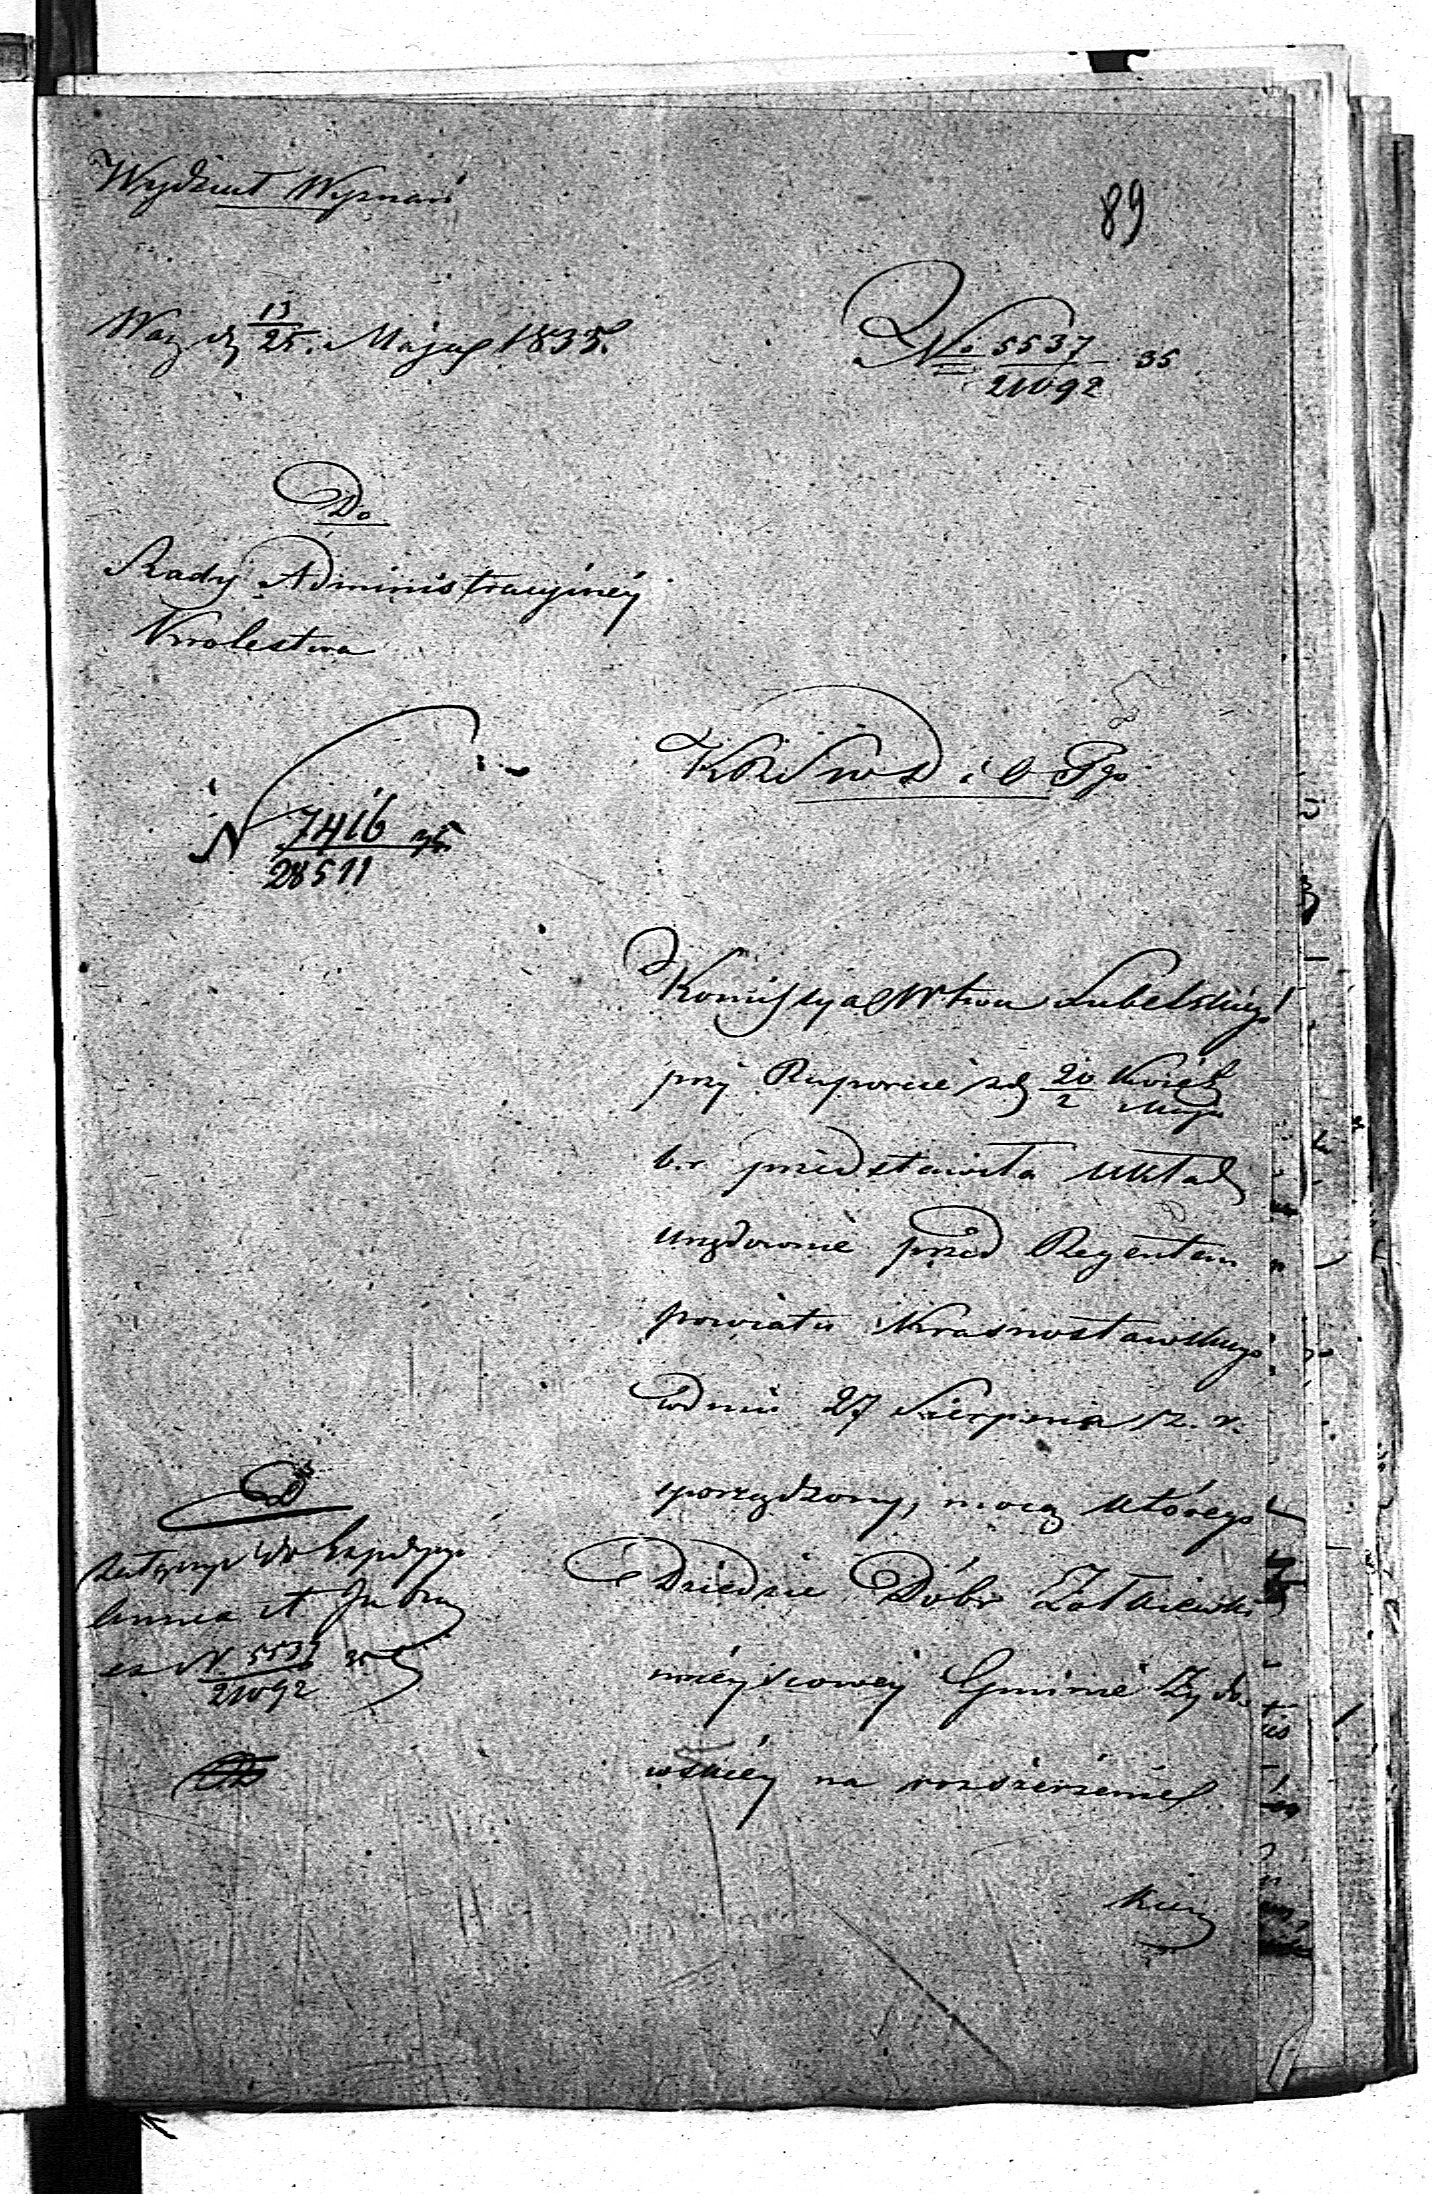 Wydział Wyznań
89
War d 13/25. Maja 1835.
No 5537/21092 35
Do
Rady Administracyinéy
Krolestwa
N 7416/28511 35
KRSWD i OPgo
Kommissya Wtwa Lubelskiego
przy Raporcie z d 20/2 Kwiet/Maja
b.r przedstawiła układ
urzędownie przed Regentem
powiatu Krasnostawskiego
w dniu 27 Sierpnia z. r.
sporządzony, mocą którego
Dziedzic Dóbr Żółkiewki
miéyscowéy Gminie Żydo
wskiéy na rozszerzenie
D
N 5537/21092 35